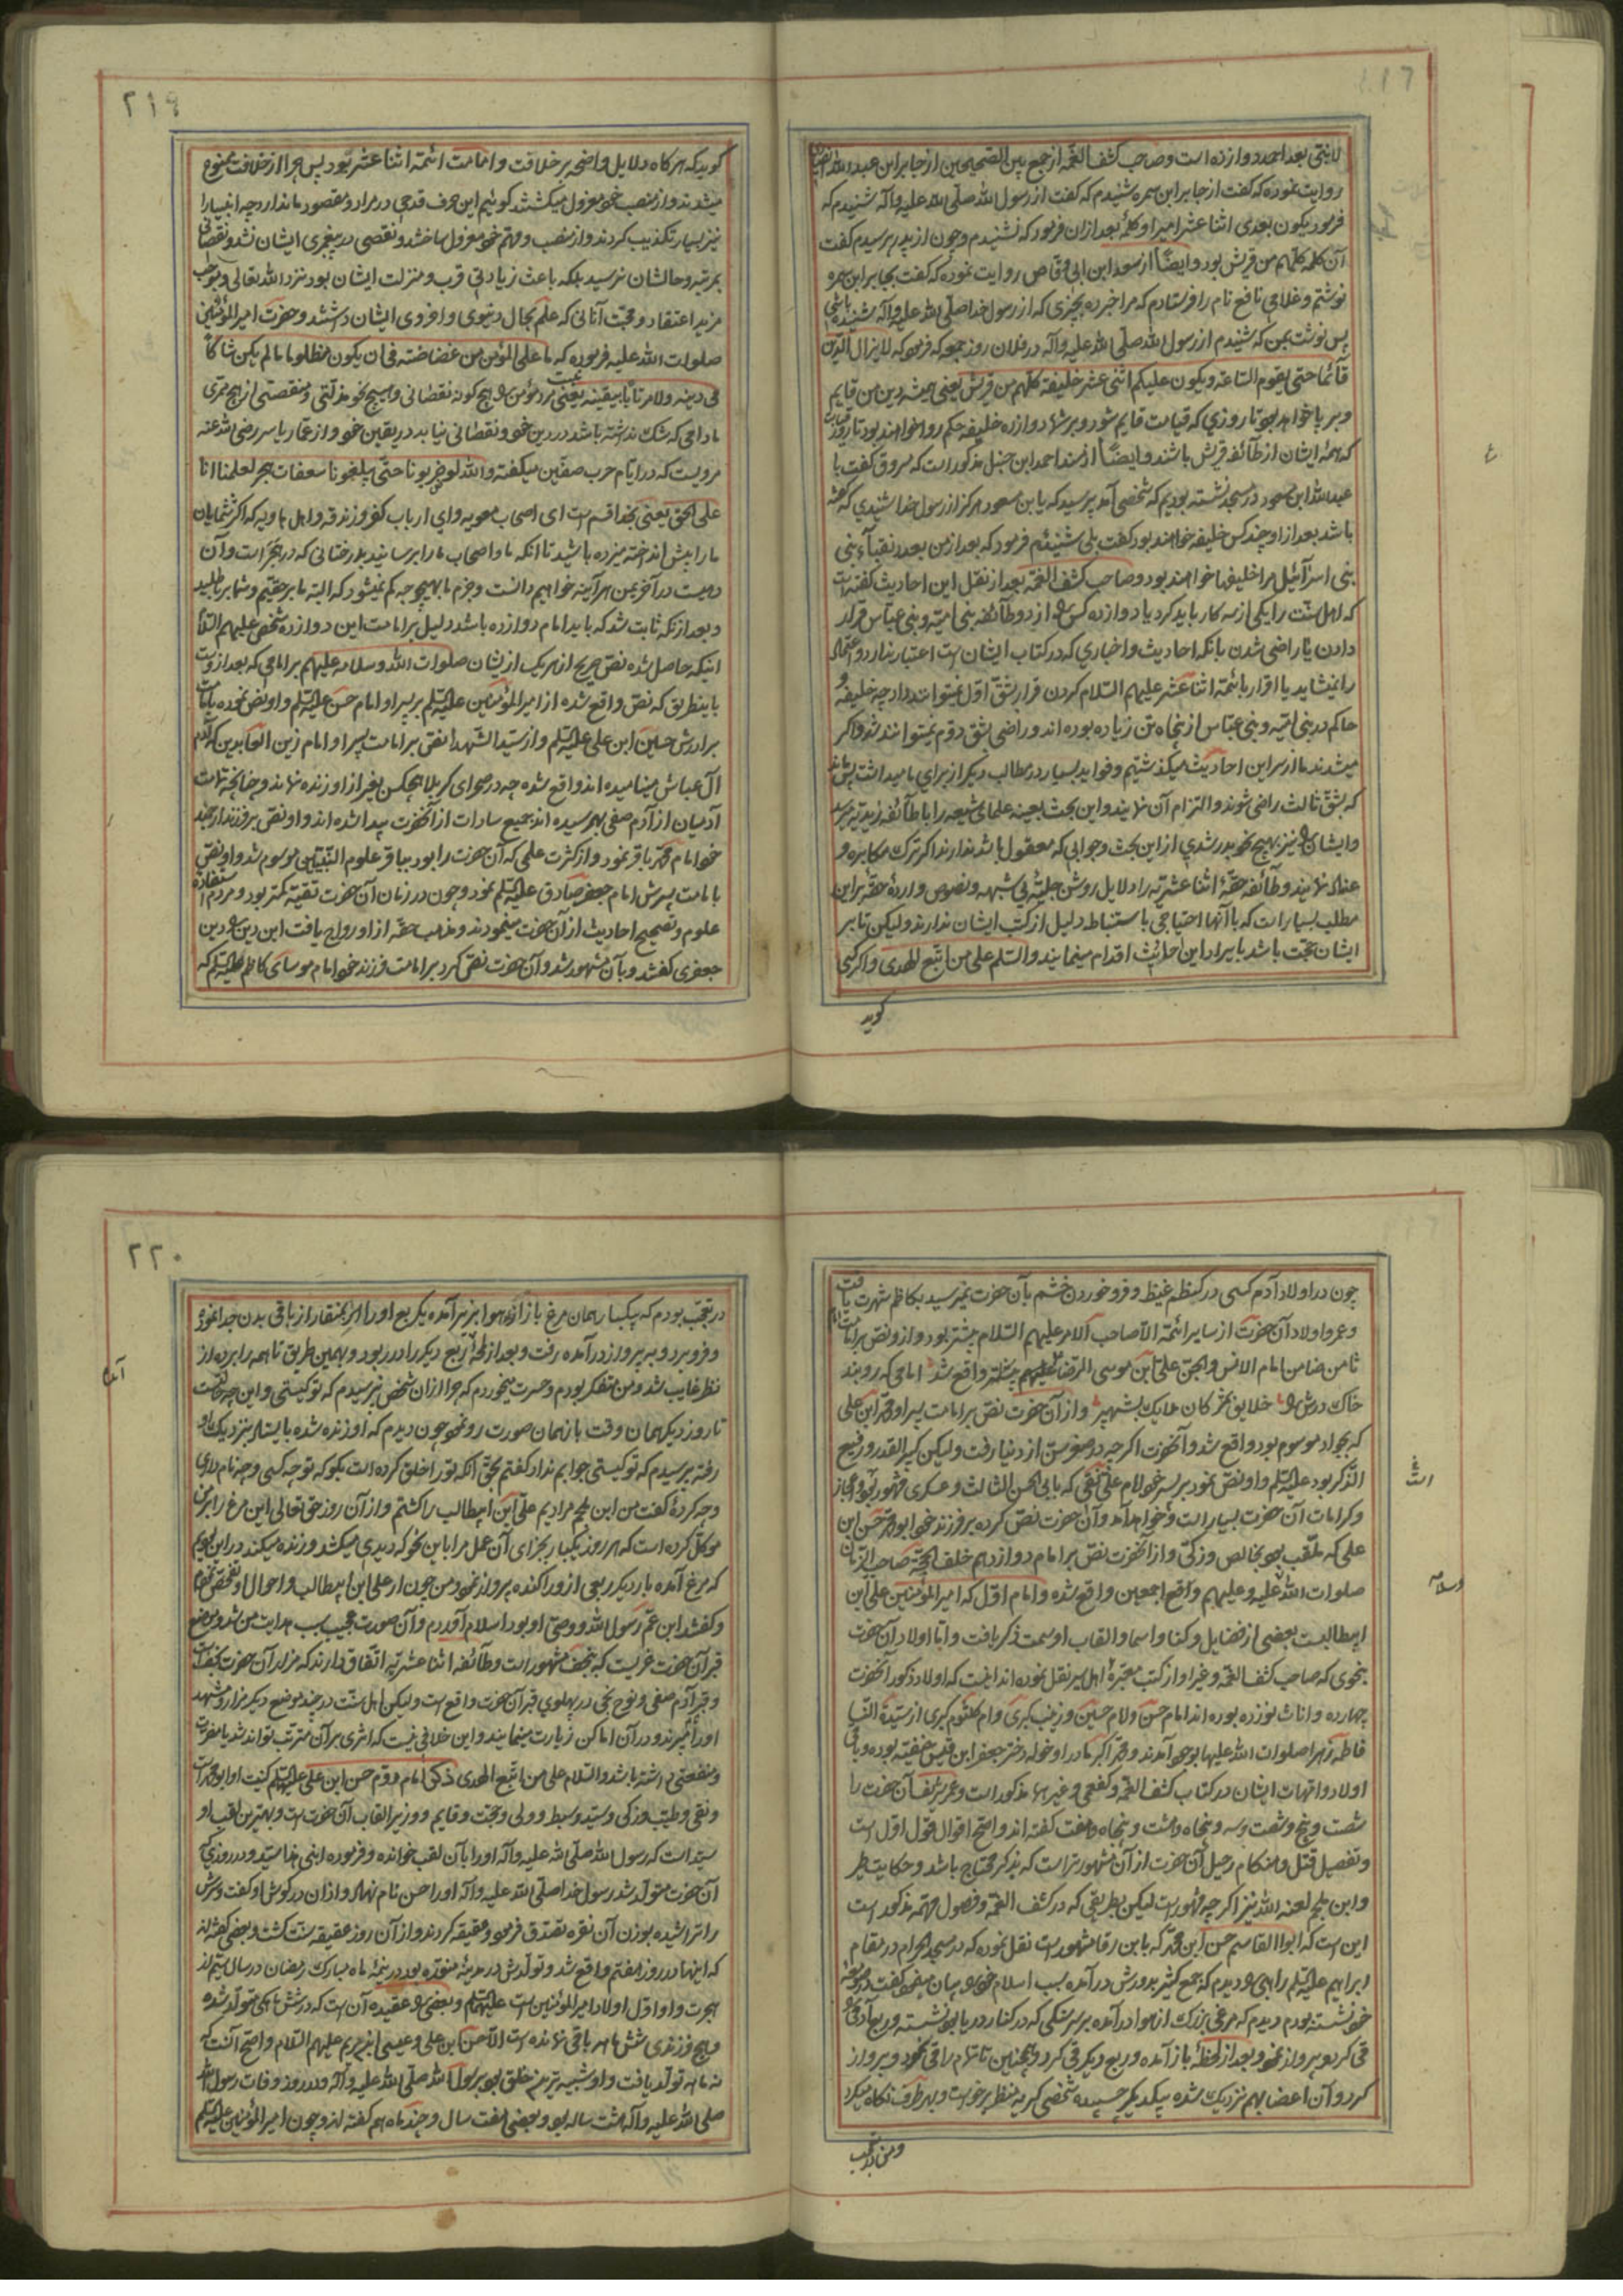 لا ینتی بعد احمد دوازده است و صاحب کشف الغمه از جمع بین الصحیحین از جابر ابن عبد الله
روایت نموده که گفت از جابر ابن سمره شنیدم که گفت از رسول الله صلی الله علیه و آله شنیدم که
فرمود یکون بعدی اثنا عشر امیرا و کلمهٔ بعد ازان فرمود که نشنیدم و چون از پدر پرسیدم گفت
آن کلمه کلهم من قریش بود و ایضًا از سعد ابن ابی وقاص روایت نموده که گفت بجابر ابن سمره
نوشتم و غلامی نافع نام را فرستادم که مرا خبر ده بچیزی که از رسول خدا صلی الله علیه و آله شنیده باشی
پس نوشت بمن که شنیدم از رسول الله صلی الله علیه و آله در فلان روز جمعه که فرمود که لا یزال الدین
قائما حتی یقوم الساعة و یکون علیکم اثنی عشر خلیفة کلهم من قریش یعنی همیشه دین من قایم
و بر پا خواهد بود تا روزی که قیامت قایم شود و بر شما دوازده خلیفه حکم روا خواهند بود تا روز قیامت
که همهٔ ایشان از طائفه قریش باشند و ایضًا از مسند احمد ابن حنبل مذکور است که مسروق گفت با
عبد الله ابن مسعود در مسجد نشسته بودیم که شخصی آمد پرسید که یا بن مسعود هرگز از رسول خدا شنیدی که گفته
باشد بعد از او چند کس خلیفه خواهند بود گفت بلی شنیدم فرمود که بعد از من بعدد نقباء بنی
بنی اسرآئیل مرا خلیفها خواهند بود و صاحب کشف الغمه بعد از نقل این احادیث گفته است
که اهل سنت را یکی از سه کار باید کرد یا دوازده کس را از دو طائفه بنی امیه و بنی عباس قرار
دادن یا راضی شدن بانکه احادیث و اخباری که در کتاب ایشان است اعتبار ندارد و اعتماد
را نمیشاید یا اقرار بائمهٔ اثنا عشر علیهم السلام کردن قرار بشق اول نمیتوانند داد چه خلیفه و
حاکم در بنی امیه و بنی عباس از پنجاه تن زیاده بوده اند و راضی بشق دوم نمیتوانند شد و اگر
میشدند ما از سر این احادیث میگذشتیم و فواید بسیار در مطالب دیگر از برای ما میداشت پس باید
که بشق ثالث راضی شوند و التزام آن نمایند و این بحث بعینه علمای شیعه را با طائفه زیدیه میرسد
و ایشان را نیز بهیچ نحو بدر شدی از این بحث و جوابی که معقول باشد ندارند اگر ترک مکابره و
عناد نمایند و طائفه حقهٔ اثنا عشریه را دلایل روشن جلیهٔ بی شبهه و نصوص واردهٔ حقه بر این
مطلب بسیار است که با آنها احتیاجی باستنباط دلیل از کتب ایشان ندارند ولیکن تا بر
ایشان حجت باشد بایراد این احادیث اقدام مینمایند و السلم علی من اتبع الهدی و اگر کسی
گوید
٢١٩
گوید که هرگاه دلایل واضحه بر خلافت و امامت ائمهٔ اثنا عشر بود پس چرا از خلافت ممنوع
میشدند و از منصب خود معزول میگشتند گوئیم این حرف قدحی در مراد و مقصود ما ندارد چه انبیا را
نیز بسیار تکذیب کردند و از منصب و مهم خود معزول ساختند و نقصی در پیغمبری ایشان نشد و نقصانی
بمرتبه و حالشان نرسید بلکه باعث زیادتی قرب و منزلت ایشان بود نزد الله تعالی و موجب
مزید اعتقاد و محبت آنانی که علم بحال دنیوی و اخروی ایشان داشتند و حضرت امیر المؤمنین
صلوات الله علیه فرموده که ما علی المؤمن من غضاضة فی ان یکون مظلوما ما لم یکن شاکا
فی دینه ولا مرتابا بیقینه یعنی نیست بر مؤمن را هیچ گونه نقصانی و هیچ نحو مذلتی و منقصتی از هیچ ممری
مادامی که شک نداشته باشد در دین خود و نقصانی نیابد در یقین خود و از عمار یاسر رضی الله عنه
مرویست که در ایام حرب صفین میگفته والله لو ضربونا حتی یبلغونا سعفات هجر لعلمنا انا
علی الحق یعنی بخدا قسم است ای اصحاب معویه و ای ارباب کفر و زندقه و اهل هاویه که اگر شمایان
ما را پیش انداخته میزده باشید تا انکه ما و اصحاب ما را برسانید بدرختانی که در هجر است و آن
دهیست در آخر یمن هر آینه خواهیم دانست و جزم ما بهیچوجه کم نمیشود که البته ما بر حقیم و شما بر باطلید
و بعد از انکه ثابت شد که باید امام دوازده باشد دلیل بر امامت این دوازده شخص علیهم السلام
اینکه حاصل شده نص صریح از هر یک از ایشان صلوات الله و سلامه علیهم بر امامی که بعد از وست
باینطریق که نص واقع شده از امیر المؤمنین علیه السلم بر پسر او امام حسن علیه السلم و او نص نموده بامامت
برادرش حسین ابن علی علیه السلم و از سید الشهدا نص بر امامت پسر او امام زین العابدین که آدم
آل عباش مینامیده اند واقع شده چه در صحرای کربلا هیچکس بغیر از او زنده نماند و چنانچه تمامت
آدمیان از آدم صفی بهم رسیده اند جمیع سادات از آنحضرت پیدا شده اند و او نص بر فرزند ارجمند
خود امام محمد باقر نمود و از کثرت علمی که آن حضرت را بود بباقر علوم النبیین موسوم شد و او نص
بامامت پسرش امام جعفر صادق علیه السلم نمود و چون در زمان آن حضرت تقیه کمتر بود و مردم استفاده
علوم و تصحیح احادیث از آن حضرت مینمودند و مذهب حقه از او رواج یافت این دین را دین
جعفری گفتند و بآن مشهور شد و آن حضرت نص کرد بر امامت فرزند خود امام موسای کاظم علیه السلم که
چون در اولاد آدم کسی در کظم غیظ و فرو خوردن خشم بآن حضرت نمیرسید بکاظم شهرت یافت
و عمر و اولاد آن حضرت از سایر ائمه الا صاحب الامر علیهم السلام بیشتر بود و از و نص بر امامت امام
ثامن ضامن امام الانس والجن علی ابن موسی الرضا علیهم السلم واقع شد امامی که روبند
خاک درش را خلایق بمژگان ملایک بشهپر و از آن حضرت نص بر امامت پسر او محمد ابن علی
که بجواد موسوم بود واقع شد و آنحضرت اگر چه در صغر سن از دنیا رفت ولیکن کبیر القدر و رفیع
الذکر بود علیه السلم و او نص نمود بر پسر خود امام علی نقی که بابی الحسن الثالث و عسکری مشهور بود و معجزات
و کرامات آن حضرت بسیار است و خواهد آمد و آن حضرت نص کرده بر فرزند خود ابو محمد حسن ابن
علی که ملقب بود بخالص و زکی و از آنحضرت نص بر امام دوازدهم خلف الحجة صاحب الزمان
صلوات الله علیه و علیهم اجمعین واقع شده و امام اول که امیر المؤمنین علی ابن
ابیطالبست بعضی از فضایل و کنا و اسما و القاب او سمت ذکر یافت و اما اولاد آن حضرت
بنحوی که صاحب کشف الغمه و غیر او از کتب معتبرهٔ اهل سیر نقل نموده اند اینست که اولاد ذکور آنحضرت
چهارده و اناث نوزده بوده اند امام حسن و امام حسین و زینب کبری و ام کلثوم کبری از سیدة النسا
فاطمه زهرا صلوات الله علیها بوجود آمدند و محمد اکبر مادر او خوله دختر جعفر ابن قیس حنفیه بوده و باقی
اولاد و امهات ایشان در کتاب کشف الغمه و کفعمی و غیرها مذکور است و عمر شریف آن حضرت را
شصت و پنج و شصت و سه و پنجاه و هشت و پنجاه و هفت گفته اند و اصح اقوال قول اول است
و تفصیل قتل و هنگام رحیل آن حضرت از آن مشهور تر است که بذکر محتاج باشد و حکایت طیر
و ابن ملجم لعنه الله نیز اگر چه مشهور است لیکن بطریقی که در کشف الغمه و فصول مهمه مذکور است
این است که ابوالقاسم حسن ابن محمد که بابن رفا مشهور است نقل نموده که در مسجد الحرام در مقام
ابراهیم علیه السلم راهبی را دیدم که جمع کثیر بدورش در آمده سبب اسلام خود را بیان مینمود گفت در صومعه
خود نشسته بودم دیدم که مرغی بزرگ از هوا در آمده بر سر سنگی که در کنار دریا بود نشسته و ربع آدمی را
قی کرد و پرواز نمود و بعد از لحظهٔ باز آمده و ربع دیگر قی کرد و همچنین تا تمام را قی نمود و پرواز
کرد و آن اعضا بهم نزدیک شده بیکدیگر چسبیده شخصی کریه منظر برخواست و بهر طرف نگاه میکرد
و من در تعجب
٢٢٠
در تعجب بودم که بیکبار همان مرغ باز از هوا بزیر آمده یکربع او را بمنقار از باقی بدن جدا نمود
و فرو برد و بپرواز در آمده رفت و بعد از لحظهٔ ربع دیگر را در ربود و بهمین طریق تا همه را برده از
نظر غایب شد و من متفکر بودم و حسرت میخوردم که چرا از ان شخص نپرسیدم که تو کیستی و این چه حالتست
تا روز دیگر همان وقت باز همان صورت رو نمود چون دیدم که او زنده شده بایستاد نزدیک او
رفته پرسیدم که تو کیستی جوابم نداد گفتم بحق انکه تو را خلق کرده است بگو که تو چه کسی و چه نام داری
و چه کردهٔ گفت من ابن ملجم مرادیم علی ابن ابیطالب را کشتم و از آن روز حق تعالی این مرغ را بر من
موکل کرده است که هر روز یکبار بجزای آن عمل مرا باین نحو که دیدی میکشد و زنده میکند در این بودیم
که مرغ آمده بار دیگر ربعی از و را کنده پرواز نمود و من چون از علی ابن ابیطالب و احوال او تفحص نمودم
و گفتند ابن عم رسول الله و وصی او بود اسلام آوردم و آن صورت عجیب سبب هدایت من شد و موضع
قبر آن حضرت غریست که بنجف مشهور است و طائفه اثنا عشریه اتفاق دارند که مزار آن حضرت نجف است
و قبر آدم صفی و نوح نجی در پهلوی قبر آن حضرت واقع است ولیکن اهل سنت در چند موضع دیگر مزار و مشهد
او را میبرند و در آن اماکن زیارت مینمایند و این خلافی نیست که اثری بر آن مترتب تواند شد یا مضرت
و منفعتی داشته باشد و السلام علی من اتبع الهدی ذکر امام دوم حسن ابن علی علیه السلم کنیت او ابو محمد است
و نقی و طیب و زکی و سید و سبط و ولی و حجت و قایم و وزیر القاب آن حضرت است و بهترین لقب او
سید است که رسول الله صلی الله علیه و آله او را بآن لقب خوانده و فرموده ابنی هذا سید و در روزی که
آن حضرت متولد شد رسول خدا صلی الله علیه و آله او را حسن نام نهاد و اذان در گوش او گفت و سرش
را تراشیده بوزن آن نقره تصدق فرمود و عقیقه کردند و از آن روز عقیقه سنت گشت و بعضی گفته اند
که اینها در روز هفتم واقع شد و تولدش در مدینهٔ منوره بود در نیمهٔ ماه مبارک رمضان در سال سیم از
هجرت و او اول اولاد امیر المؤمنین است علیهما السلم و بعضی را عقیده آن است که در شش ماهگی متولد شده
و هیچ فرزندی شش ماهه باقی نمانده است الا حسن ابن علی و عیسی ابن مریم علیهم السلام و اصح آنست که
نه ماهه تولد یافت و او شبیه ترین خلق بود برسول الله صلی الله علیه و آله و در روز وفات رسول الله
صلی الله علیه و آله هشت ساله بود و بعضی هفت سال و چند ماه هم گفته اند و چون امیر المؤمنین علیه السلم